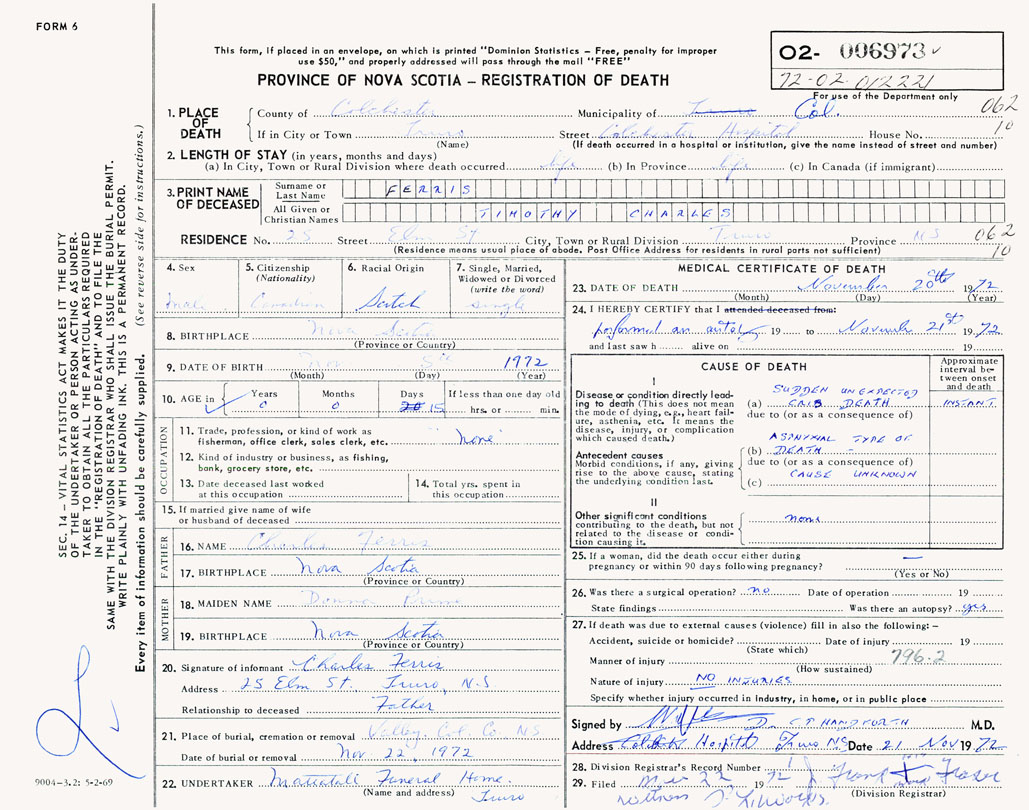 FORM 6
This form, if placed in an envelope, on which is printed "Dominion Statistics – Free, penalty for improper
use $50," and properly addressed will pass through the mail "FREE"
PROVINCE OF NOVA SCOTIA – REGISTRATION OF DEATH
02- 006973
72-02-012221
For use of the Department only
062
10
1. PLACE OF DEATH
County of Colchester Municipality of Truro Col.
If in City or Town Truro Street Colchester Hospital House No.
(Name) (If death occurred in a hospital or institution, give the name instead of street and number)
2. LENGTH OF STAY (in years, months and days)
(a) In City, Town or Rural Division where death occurred life (b) In Province life (c) In Canada (if immigrant)
3. PRINT NAME OF DECEASED
Surname or Last Name FERRIS
All Given or Christian Names TIMOTHY CHARLES
RESIDENCE No. 25 Street Elm St City, Town or Rural Division Truro Province NS
062
10
(Residence means usual place of abode. Post Office Address for residents in rural parts not sufficient)
4. Sex Male
5. Citizenship (Nationality) Canadian
6. Racial Origin Scotch
7. Single, Married, Widowed or Divorced (write the word) single
8. BIRTHPLACE Nova Scotia
(Province or Country)
9. DATE OF BIRTH Nov 5th 1972
(Month) (Day) (Year)
10. AGE in Years 0 Months 0 Days 15 If less than one day old hrs. or min.
OCCUPATION
11. Trade, profession, or kind of work as fisherman, office clerk, sales clerk, etc. "none"
12. Kind of industry or business, as fishing, bank, grocery store, etc.
13. Date deceased last worked at this occupation
14. Total yrs. spent in this occupation
15. If married give name of wife or husband of deceased
FATHER
16. NAME Charles Ferris
17. BIRTHPLACE Nova Scotia
(Province or Country)
MOTHER
18. MAIDEN NAME Donna
19. BIRTHPLACE Nova Scotia
(Province or Country)
20. Signature of informant Charles Ferris
Address 25 Elm St. Truro, N.S
Relationship to deceased Father
21. Place of burial, cremation or removal Valley Col. Co. NS
Date of burial or removal Nov. 22, 1972
22. UNDERTAKER Mattatall Funeral Home.
(Name and address) Truro
MEDICAL CERTIFICATE OF DEATH
23. DATE OF DEATH November 20th 1972
(Month) (Day) (Year)
24. I HEREBY CERTIFY that I attended deceased from:
performed an 19 to November 21st 1972
and last saw h alive on 19
CAUSE OF DEATH
Approximate interval between onset and death
I
Disease or condition directly leading to death (This does not mean the mode of dying, e.g., heart failure, asthenia, etc. It means the disease, injury, or complication which caused death.)
SUDDEN UNEXPECTED
(a) CRIB DEATH INSTANT.
due to (or as a consequence of)
Antecedent causes
Morbid conditions, if any, giving rise to the above cause, stating the underlying condition last.
ASPHYXIAL TYPE OF
(b) DEATH -
due to (or as a consequence of)
CAUSE UNKNOWN
(c)
II
Other significant conditions contributing to the death, but not related to the disease or condition causing it.
none
25. If a woman, did the death occur either during pregnancy or within 90 days following pregnancy? —
(Yes or No)
26. Was there a surgical operation? no Date of operation 19
State findings Was there an autopsy? yes
27. If death was due to external causes (violence) fill in also the following: –
Accident, suicide or homicide? Date of injury 19
(State which)
796.2
Manner of injury
(How sustained)
Nature of injury NO INJURIES
Specify whether injury occurred in industry, in home, or in public place
Signed by C.P. HANDFORTH M.D.
Address Hospital Truro NS Date 21 Nov 1972
28. Division Registrar's Record Number
29. Filed 22 1972 Fraser
(Division Registrar)
witness
SEC. 14 – VITAL STATISTICS ACT MAKES IT THE DUTY
OF THE UNDERTAKER OR PERSON ACTING AS UNDER-
TAKER TO OBTAIN ALL THE PARTICULARS REQUIRED
IN THE "REGISTRATION OF DEATH" AND TO FILE THE
SAME WITH THE DIVISION REGISTRAR WHO SHALL ISSUE THE BURIAL PERMIT.
WRITE PLAINLY WITH UNFADING INK. THIS IS A PERMANENT RECORD.
Every item of information should be carefully supplied. (See reverse side for instructions.)
9004-3.2: 5-2-69